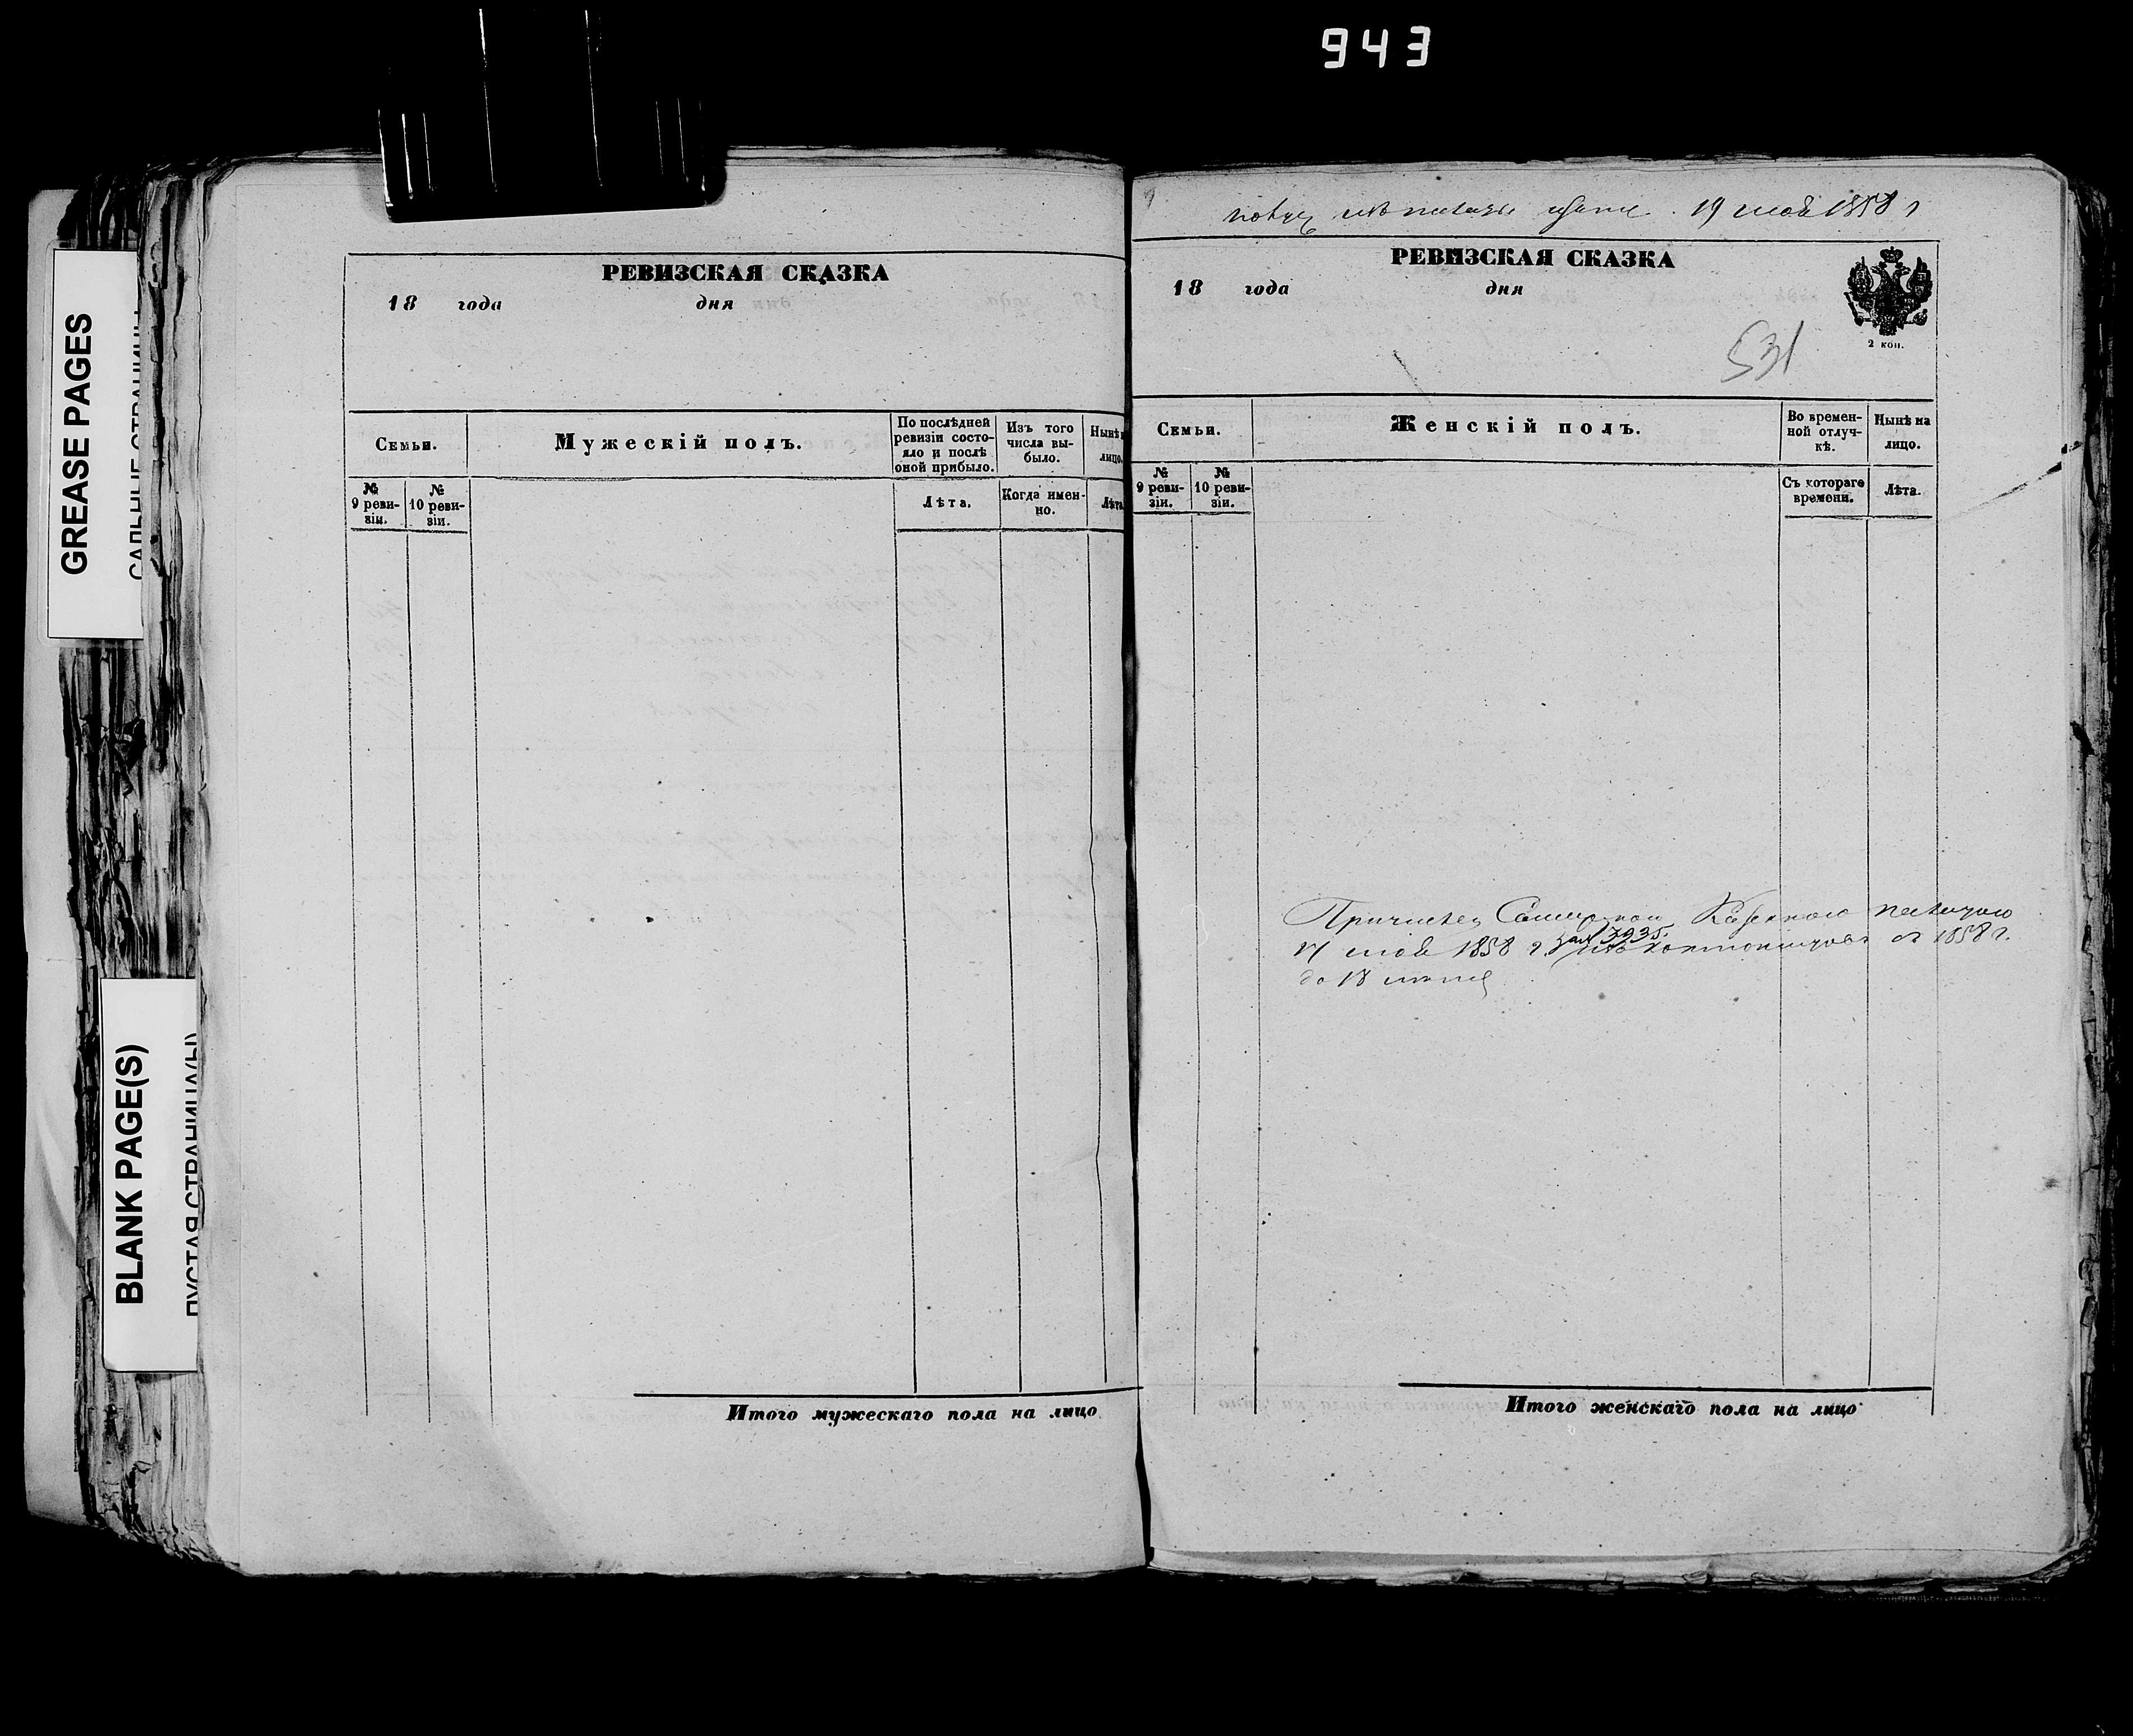 943
GREASE PAGES
BLANK PAGE(S)
РЕВИЗСКАЯ СКАЗКА
18 года дня
Семьи.
Мужескій полъ.
По послѣдней
ревизіи состо-
яло и послѣ
оной прибыло.
Изъ того
числа вы-
было.
Нынѣ
лицо.
№
9 реви-
зіи.
№
10 реви-
зіи.
Лѣта.
Когда имен-
но.
Лѣта
Итого мужескаго пола на лицо
19 мая 1858 г
РЕВИЗСКАЯ СКАЗКА
18 года дня
2 коп.
531
Семьи.
Женскій полъ.
Во времен-
ной отлуч-
кѣ.
Нынѣ на
лицо.
№
9 реви-
зіи.
№
10 реви-
зіи.
Съ котораго
времени.
Лѣта.
Казенною палатою
3935.
мая 1858 г. 1858 г.
до 18
Итого женскаго пола на лицо